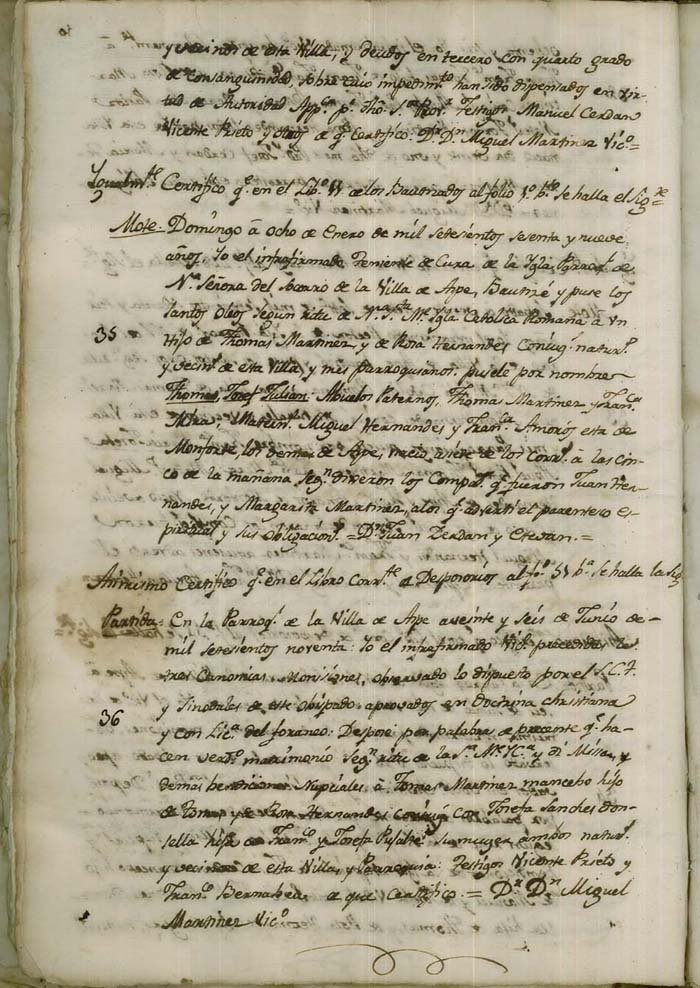 y vecinos de esta Villa, y deudos en tercero con quarto grado
de consanguinidad, sobre cuio impedim.to han sido dispensados en vir-
tud de Autoridad App.ca p.r dho. S.or Prov.r Testigos Manuel Cerdan
Vicente Prieto y otros de q.e Certifico: D.r D.n Miguel Martinez Vic.o =
Igualm.te Certifico q.e en el Lib.o 11 de los Bautizados al folio 1.o b.to se halla el Sig.te =
Mote. Domingo â ocho de Enero de mil setesientos sesenta y nueve
años, Yo el infrafirmado Teniente de Cura de la Ygla. Parroq.l de
N.a Señora del Socorro de la Villa de Aspe, Bautizé y puse los
santos oleos segun ritu de N.a S.ta M.e Ygla Catolica Romana a un
35
Hijo de Thomas Martinez y de Rosa Hernandes Coniug.s natur.s
y vecin.s de esta Villa y mis parroquianos: pusele por nombre
Thomas, Josef Julian: Abuelos Paternos, Thomas Martinez y Fran.ca
Mira, Matern.s Miguel Hernandes y Fran.ca Amorós esta de
Monforte, los demas de Aspe, nació a siete de los Corr.s â las Cin-
co de la mañana seg.n dixeron los Compad.s q.e fueron Juan Her-
nandes, y Margarita Martinez, a los q.e adverti el parentesco es-
piritual y sus obligacion.s = D.n Juan Cerdan y Estevan. =
Asimismo Certifico q.e en el Libro Corr.te de Desposorios al fo.o 51 b.a se halla la Sig.
Partida: En la Parroq.l de la Villa de Aspe a veinte y seis de Junio de
mil setesientos noventa: Yo el infrafirmado Vic.o precedidas las
tres Canonias Monisiones, observado lo dispuesto por el S.C.T.
y Sinodales de este obispado: aprovados en doctrina christiana
36
y con Lic.a del foraneo: Desposé por palabras de precente q.e ha-
cen verd.o matrimonio seg.n ritu de la S.ta M.e Y.Ca. y di Misa, y
demás bendiciones Nupciales, à Tomas Martinez mancebo hijo
de Tomas y de Rosa Hernandes conjug.s con Josefa Sanches Don-
sella hija de Fran.co y Josefa su muger ambos natur.s
y vecinos de esta Villa, y Parroquia: Testigos Vicente Prieto y
Fran.co Bernabeu de que Certifico = D.r D.n Miguel
Martinez Vic.o